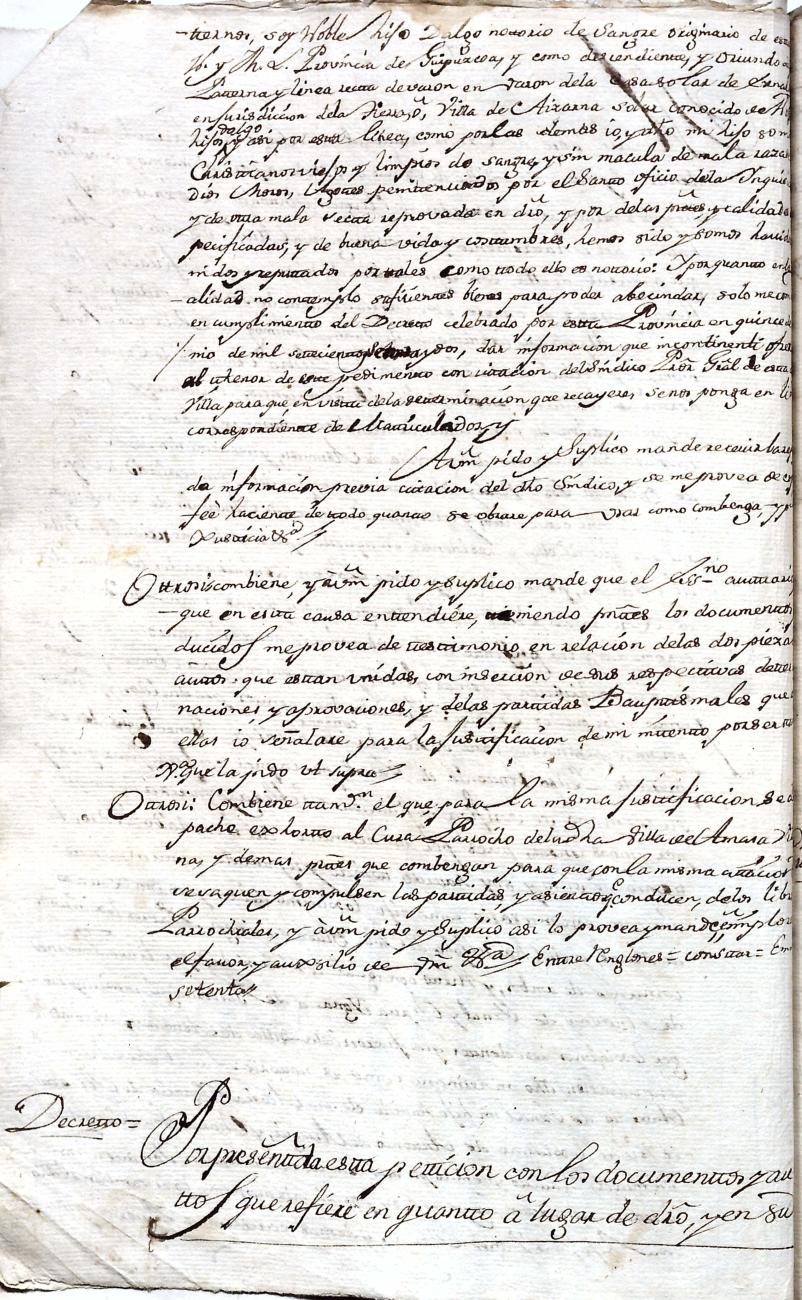 -ternos, soy Noble hijo Dalgo notorio de Sangre originario de esta
M. N. y M. L. Provincia de Guipuzcoa, y como descendiente, y oriundo
Paterna y linea recta de varon en varon dela Casa solar de
en jurisdiccion dela Villa de Aizarna solar conocido de
hijos dalgo y asi por esta linea, como por las demas io, y dho mi hijo somos
Christianos viejos y limpios de sangre, y sin macula de mala raza
dios Moros, penitenciados por el Santo oficio dela Inqui
y de otra mala secta reprovada en dro, y por delas ptes y calidades
pecificadas, y de buena vida y costumbres, hemos sido y somos havidos
nidos y reputados por tales como todo ello es notorio: Y por quanto en
-alidad no contemplo suficientes bienes para poder abecindar, solo me con
en cumplimiento del Decreto celebrado por esta Provincia en quince de
nio de mil setecientos y dos, dar informacion que incontinenti ofre
al thenor de este pedimento con citacion del Sindico Pror Gral de esta
Villa para que, en vista dela determinacion que recayere, se nos ponga en
correspondiente de Matriculados, y
A Vm pido y Suplico mande recivir la
da informacion previa citacion del dho Sindico, y se me provea de
-feè haciente de todo quanto se obrare para usar como combenga
Justicia &a
Ottrosi combiene, y à Vm pido y Suplico mande que el Essno actuario
-que en esta causa entendiére, teniendo pntes los documentos
ducidos me provea de testimonio en relación delas dos piezas
autos que estan unidas, con insercion de sus respectivas deter
naciones, y aprovaciones, y delas partidas Bauptismales que
ellas io señalare para la Justificacion de mi intento por ser
la pido ut supra
Ottrosi: Combiene tamvn el que para la misma Justificacion se
pache exhorto al Cura Parrocho de la dha Villa de Amasa
na, y demas ptes que combengan para que con la misma citacion
se saquen y compulsen las partidas, y asientos q conducen, delos libros
Parrochiales, y à Vm pido y Suplico asi lo provea y mande,
el favor, y auxilio de Vm &a Entre renglones = constar = Em
setenta
Decretto =
Por presenttada esta peticion con los documenttos y au
ttos que refiere en quantto à lugar de dro, y en su